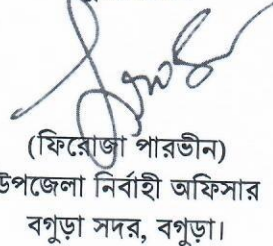 (ফিরোজা পারভীন)
উপজেলা নির্বাহী অফিসার
বগুড়া সদর, বগুড়া।